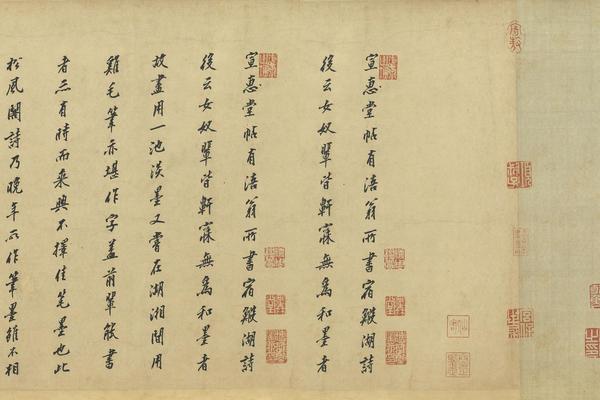 宣惠堂帖有涪翁所書宿鰕湖詩
後云女奴輩皆鼾寐無為和墨者
宣惠堂帖有涪翁所書宿鰕湖詩
後云女奴輩皆鼾寐無為和墨者
故盡用一池淡墨又嘗在湖湘間用
雞毛筆亦堪作字蓋前輩能書
者亦有時而乘興不擇佳筆墨也此
松風閣詩乃晚年所作筆墨雖不相